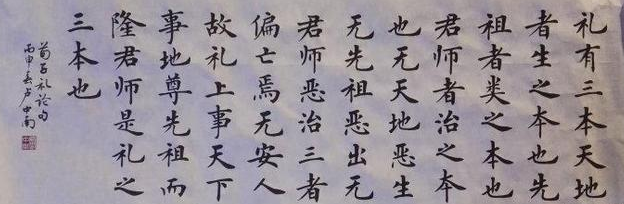 礼有三本天地
者生之本也先
祖者类之本也
君师者治之本
也无天地恶生
无先祖恶出无
君师恶治三者
偏亡焉无安人
故礼上事天下
事地尊先祖而
隆君师是礼之
三本也
荀子礼论句
丙申春卢中南